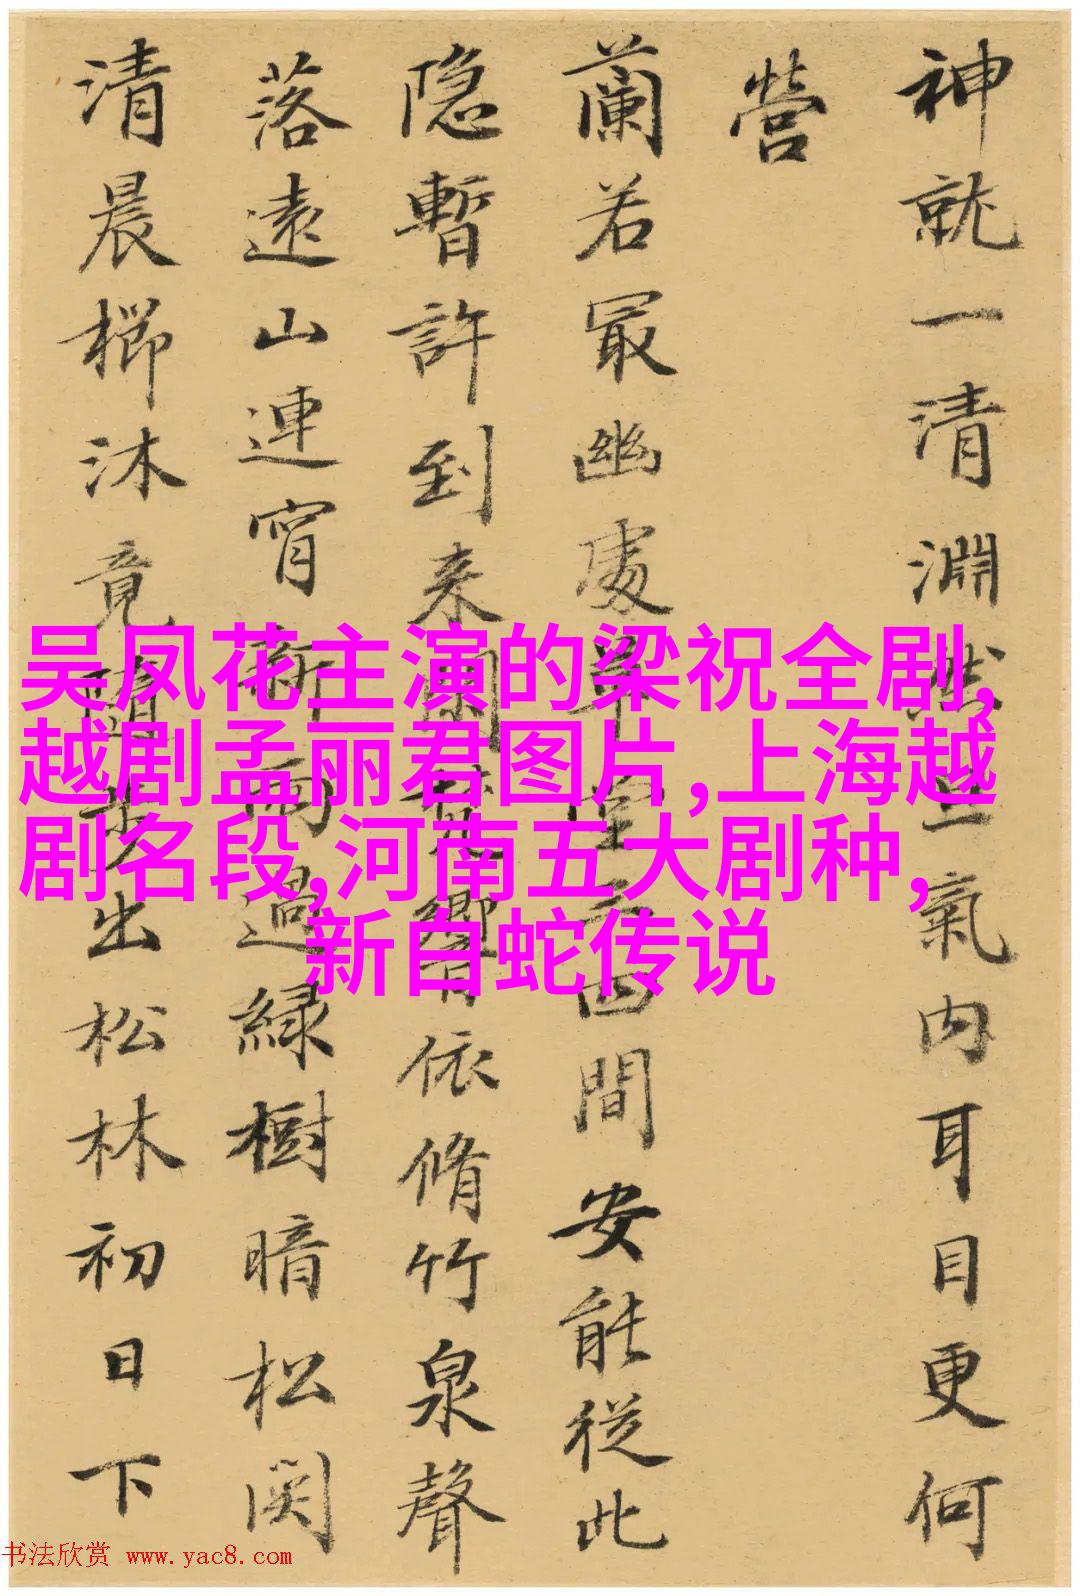 神就一清淵然氣内耳目更何
營
蘭若冣幽處草堂四間安能從此
隐暫許到来響依脩竹泉聲
落遠山連宵新雨過緑樹暗松関
清晨櫛沐竟步出松林初日下
吴凤花主演的梁祝全剧,
越剧孟丽君图片,上海越
剧名段,河南五大剧种,
新白蛇传说
书法欣赏 www.yac8.com